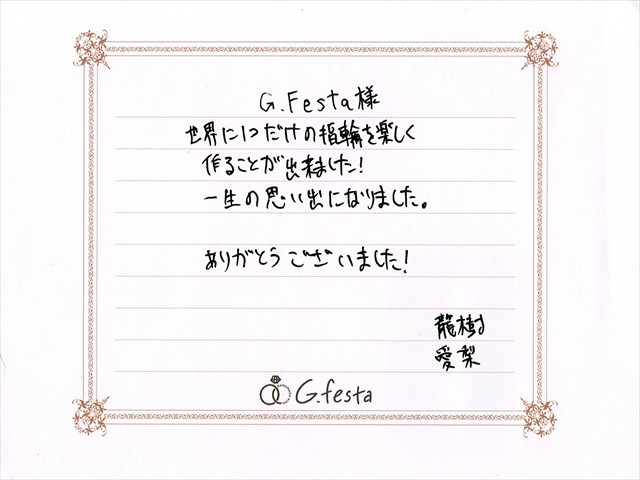 G.Festa様
世界に1つだけの指輪を楽しく
作ることが出来ました!
一生の思い出になりました。
ありがとうございました!
龍樹
愛梨
G.festa